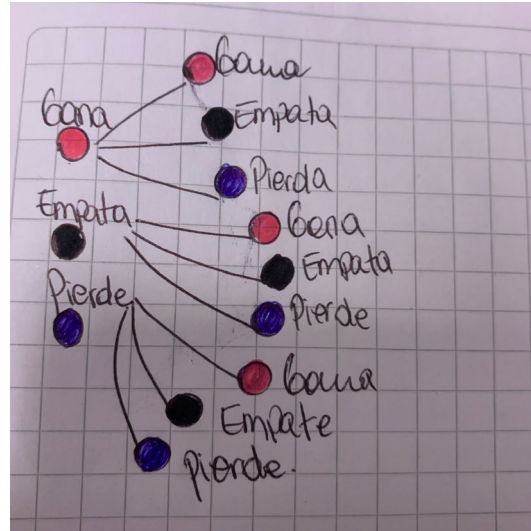 Gana
Gana
Empata
Pierda
Empata
Gena
Empata
Pierde
Pierde
Gana
Empate
pierde.